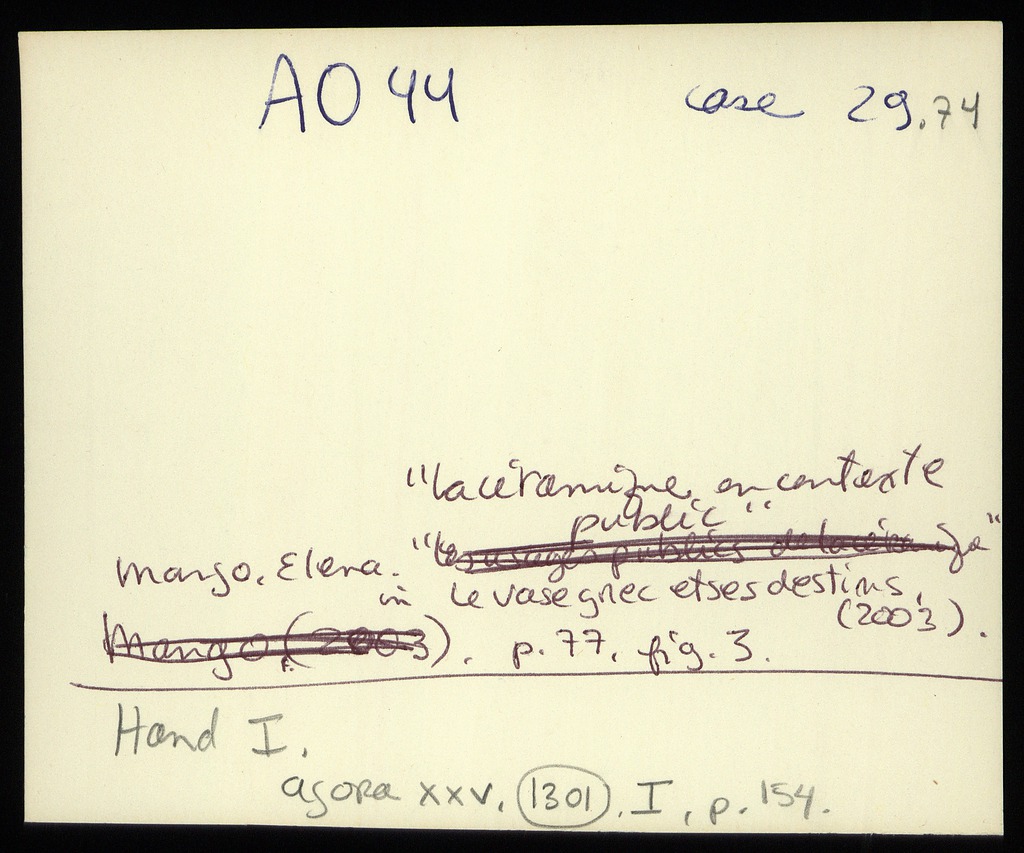 AO 44 case 29.74
"La céramique en contexte
public"
Mango, Elena. "Les usages publics de la céramiqe"
in Le vase grec et ses destins,
(2003).
Mango, (2003). p. 77, fig. 3.
Hand I.
agora XXV, 1301, I, p. 154.